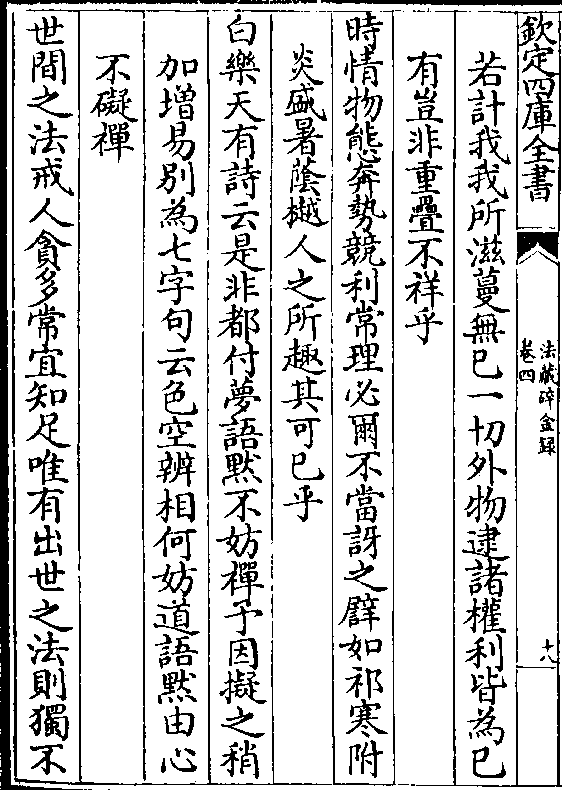 欽定四庫全書
法藏碎金録
卷四
十八
若計我我所滋蔓無已一切外物逮諸權利皆為已
有豈非重疊不祥乎
時情物態奔勢競利常理必爾不當訝之譬如祁寒附
炎盛暑蔭樾人之所趣其可已乎
白樂天有詩云是非都付夢語默不妨禪予因擬之稍
加增易別為七字句云色空辨相何妨道語默由心
不礙禪
世間之法戒人貪多常宜知足唯有出世之法則獨不